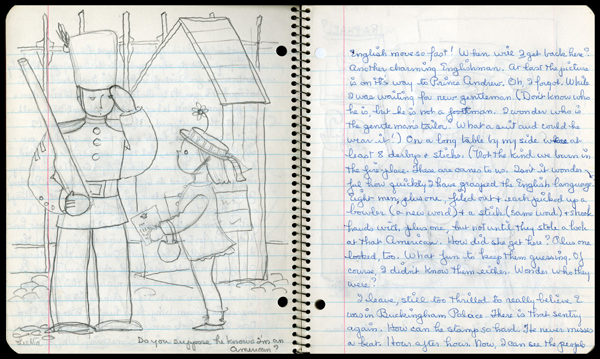 Do you suppose he knows I'm an
American?
English move so fast! When will I get back here?
Another charming Englishman. At last the picture
is on it's way to Prince Andrew. Oh, I forgot. While
I was waiting for new gentleman. (Don't know who
he is but he is not a footman. I wonder who is
the gentleman's tailor. What a suit and could he
wear it!) On a long table by my side were at
least 8 derbys & sticks. (Not the kind we burn in
the fireplace. These are canes to us. Isn't it wonder
ful how quickly I have grasped the English language.
Eight men, plus one, filed out & each picked up a
bowler (a new word) & a stick (same word) & shook
hands with, plus one, but not until they stole a look
at that American. How did she get here? Plus one
looked, too. What fun to keep them guessing. Of
course, I didn't know them either. Wonder who they
were?
I leave, still too thrilled to really believe I
was in Buckingham Palace. There is that sentry
again. How can he stamp so hard. He never misses
a beat. Hour after hour. Now, I can see the people